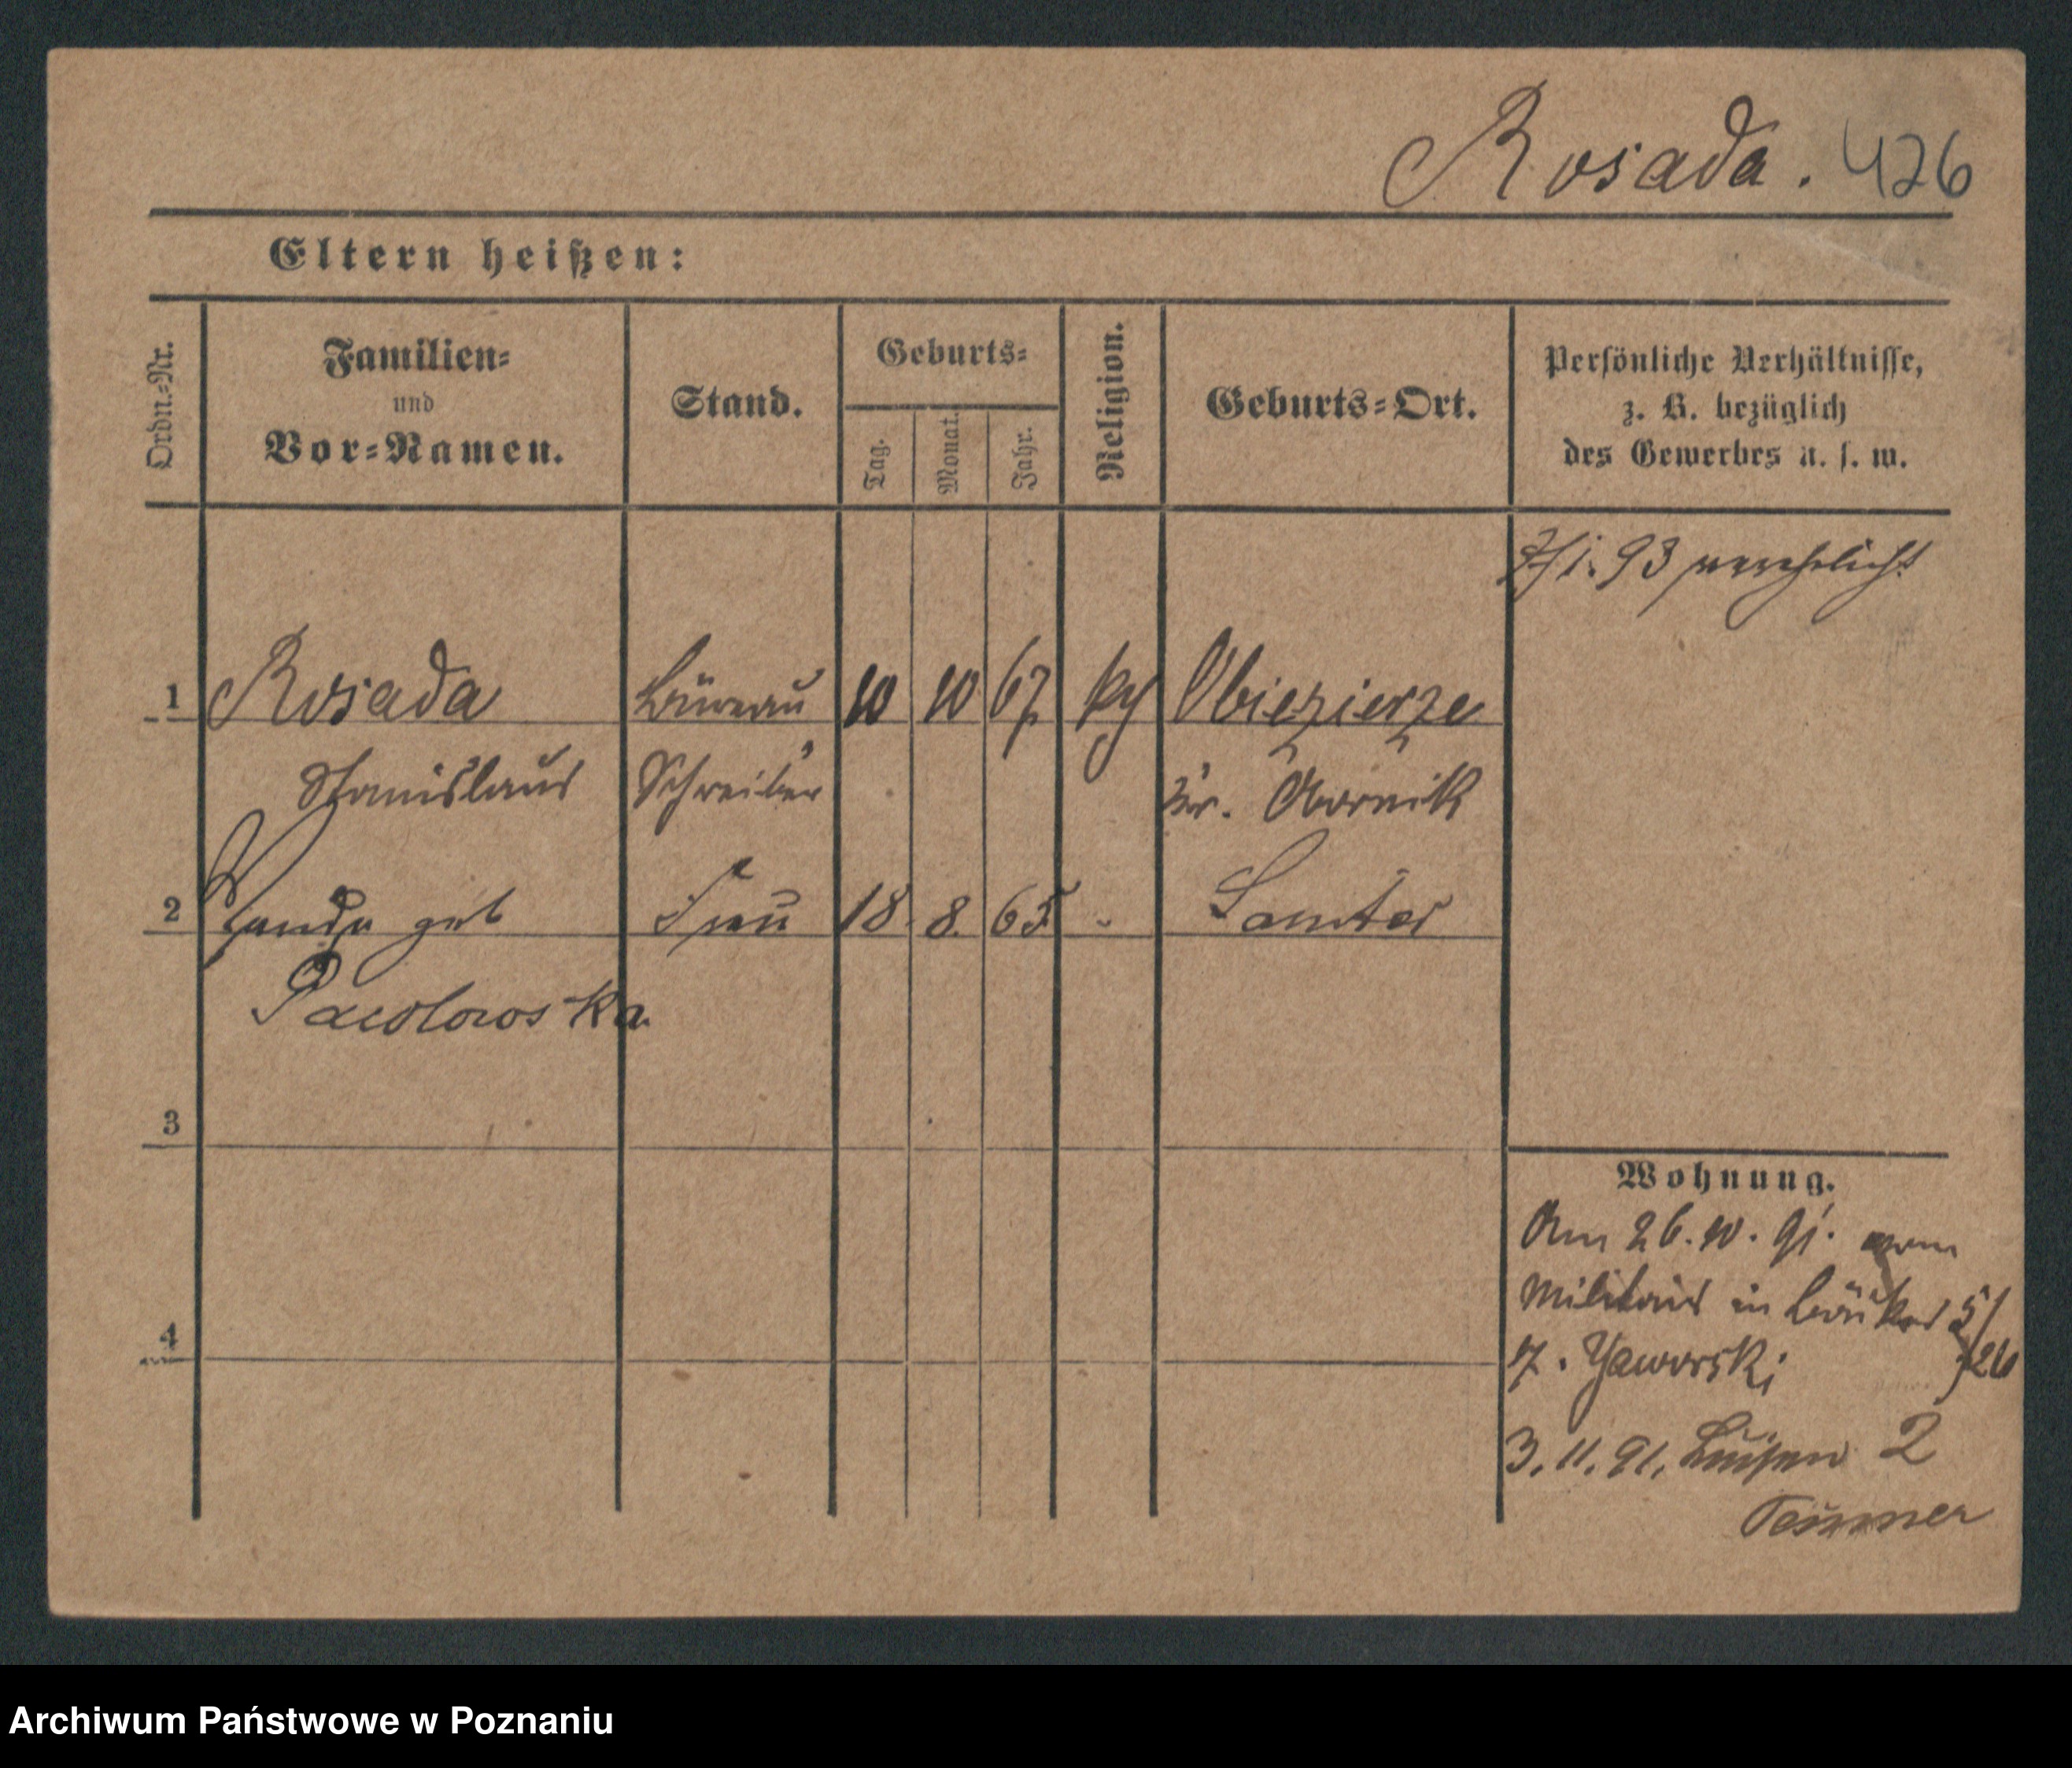 Rosada. 426
Eltern heißen:
Ordn.-Nr.
Familien-
und
Vor-Namen.
Stand.
Geburts-
Tag.
Monat.
Jahr.
Religion.
Geburts-Ort.
Persönliche Verhältnisse,
z. B. bezüglich
des Gewerbes u. s. w.
1. 93 verehelicht
1 Rosada Büreau 10 10 67 kg Obiezierze
Stanislaus Schreiber Kr. Obornik
2 Wanda geb Frau 18. 8. 65 - Samter
Pacolowska
3
4
Wohnung.
Am 26.10.91. vom
Militair in 5/
7. Jaworski 26
3.11.91. Luisen 2